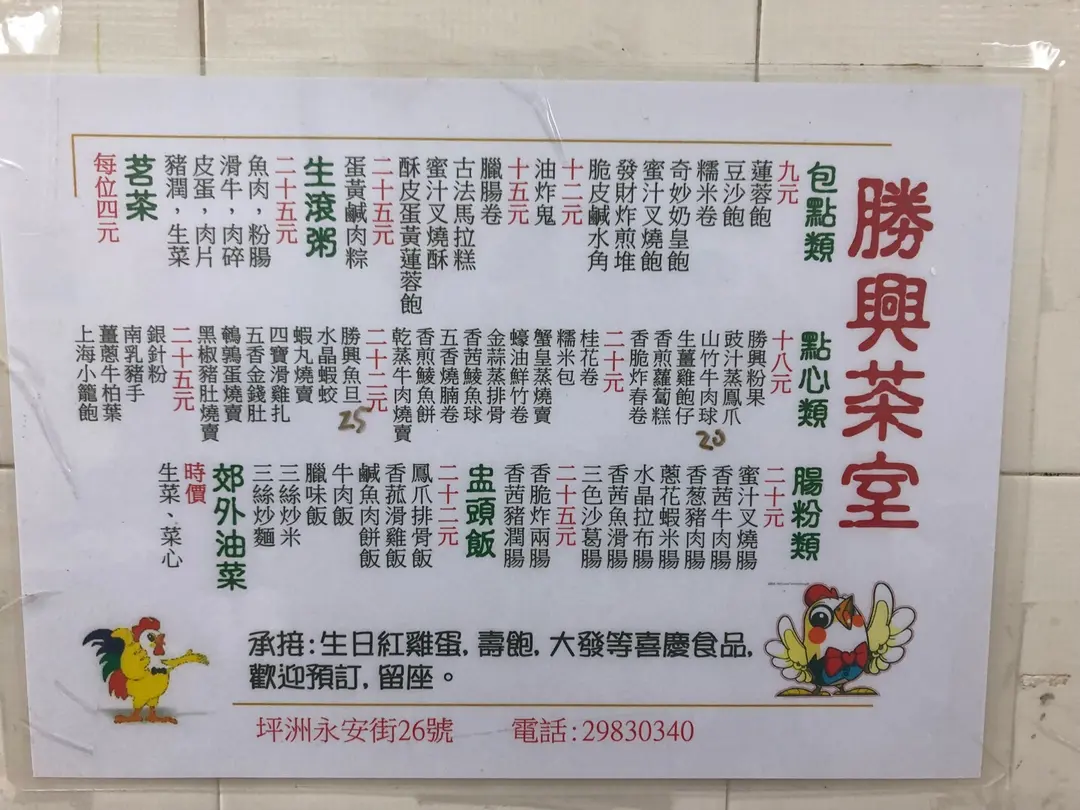 勝興茶室
包點類
九元
蓮蓉飽
豆沙飽
糯米卷
奇妙奶皇飽
蜜汁叉燒飽
發財炸煎堆
脆皮鹹水角
十二元
油炸鬼
十五元
臘腸卷
古法馬拉糕
蜜汁叉燒酥
酥皮蛋黃蓮蓉飽
二十五元
蛋黃鹹肉粽
生滾粥
二十五元
魚肉，粉腸
滑牛，肉碎
皮蛋，肉片
豬潤，生菜
茗茶
每位四元
點心類
十八元
勝興粉果
豉汁蒸鳳爪
山竹牛肉球
20
生薑雞飽仔
香煎蘿蔔糕
香脆炸春卷
二十元
桂花卷
糯米包
蟹皇蒸燒賣
蠔油鮮竹卷
金蒜蒸排骨
香茜鯪魚球
五香燒腩卷
香煎鯪魚餅
乾蒸牛肉燒賣
二十二元
勝興魚旦
25
水晶蝦蛟
蝦丸燒賣
四寶滑雞扎
五香金錢肚
鵪鶉蛋燒賣
黑椒豬肚燒賣
二十五元
銀針粉
南乳豬手
薑蔥牛柏葉
上海小籠飽
腸粉類
二十元
蜜汁叉燒腸
香茜牛肉腸
香葱豬肉腸
蔥花蝦米腸
水晶拉布腸
香茜魚滑腸
三色沙葛腸
二十五元
香脆炸兩腸
香茜豬潤腸
盅頭飯
二十二元
鳳爪排骨飯
香菰滑雞飯
鹹魚肉餅飯
牛肉飯
臘味飯
三絲炒米
三絲炒麵
郊外油菜
時價
生菜、菜心
承接:生日紅雞蛋, 壽飽, 大發等喜慶食品,
歡迎預訂, 留座。
坪洲永安街26號 電話:29830340